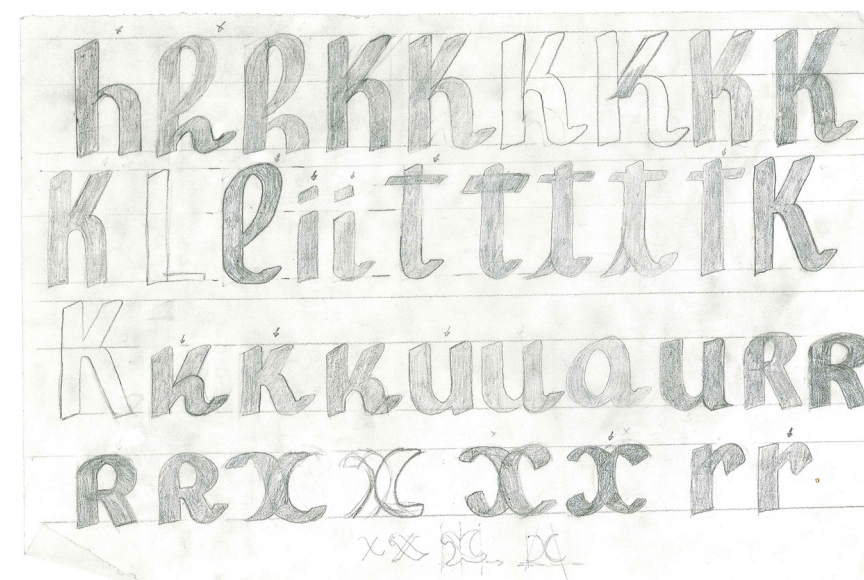 h k k K K K K K K
K L l i i t t t t t K
K k k k u u a u R R
R R x x x x r r
x x x x